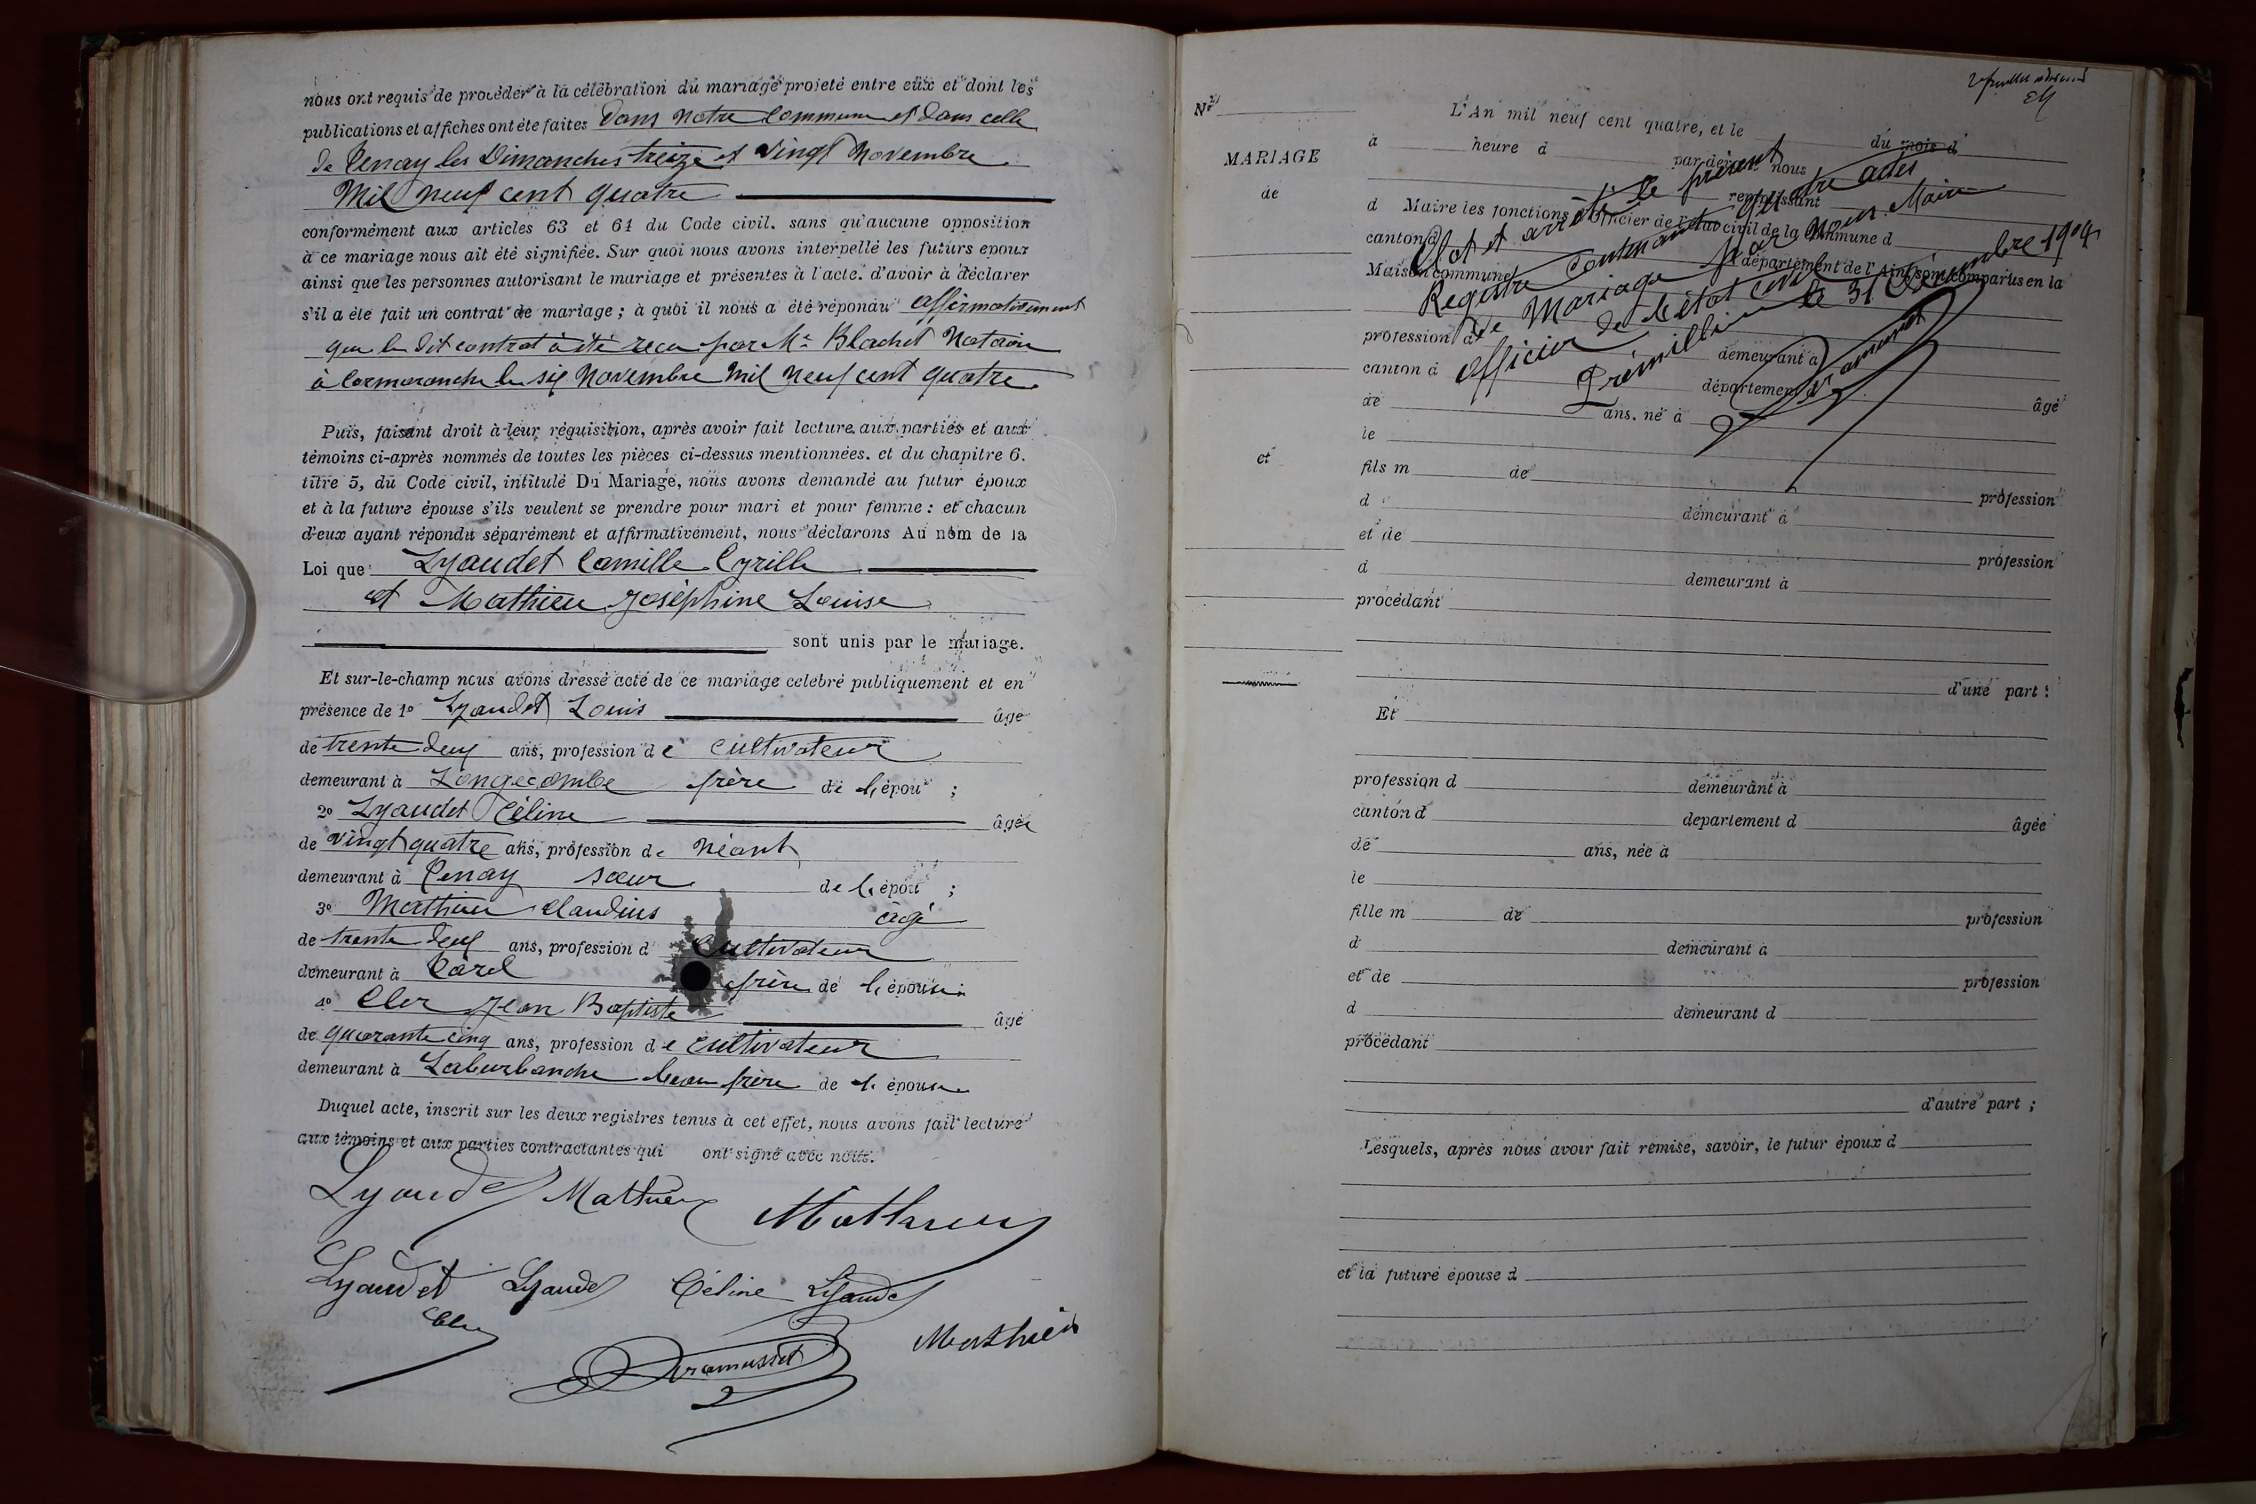 nous ont requis de procéder à la célébration du mariage projeté entre eux et dont les
publications et affiches ont été faites dans notre commune et dans celle
de Tenay les Dimanches treize et vingt Novembre
Mil neuf cent quatre
conformément aux articles 63 et 64 du Code civil. sans qu'aucune opposition
à ce mariage nous ait été signifiée. Sur quoi nous avons interpellé les futurs epoux
ainsi que les personnes autorisant le mariage et présentes à l'acte. d'avoir à déclarer
s'il a été fait un contrat de mariage ; à quoi il nous a été répondu affirmativement
que le dit contrat à été reçu par Me Blachet Notaire
à Cormaranche le six Novembre Mil neuf cent quatre.
Puis, faisant droit à leur réquisition, après avoir fait lecture aux parties et aux
témoins ci-après nommés de toutes les pièces ci-dessus mentionnées. et du chapitre 6.
titre 5, du Code civil, intitulé Du Mariage, nous avons demandé au futur époux
et à la future épouse s'ils veulent se prendre pour mari et pour femme : et chacun
d'eux ayant répondu séparément et affirmativement, nous déclarons Au nom de la
Loi que Lyaudet Camille Cyrille
et Mathieu Joséphine Louise
sont unis par le mariage.
Et sur-le-champ nous avons dressé acte de ce mariage celebré publiquement et en
présence de 1o Lyaudet Louis âgé
de trente deux ans, profession de cultivateur
demeurant à Longecombe frère de l'épou ;
2o Lyaudet Céline âgée
de vingt quatre ans, profession de néant
demeurant à Tenay sœur de l'épou ;
3o Mathieu Claudius âgé
de trente deux ans, profession d cultivateur
demeurant à frère de l'épouse
4o Cler Jean Baptiste âgé
de quarante cinq ans, profession de cultivateur
demeurant à Laburbanche beau frère de l'épouse
Duquel acte, inscrit sur les deux registres tenus à cet effet, nous avons fait lecture
aux témoins et aux parties contractantes qui ont signé avec nous.
Lyaudet Mathieu Mathieu
Lyaudet Lyaudet Céline Lyaudet
Cler
Mathieu
No
MARIAGE
de
et
L'An mil neuf cent quatre, et le du mois d
à heure à par devant nous
remplissant
d Maire les fonctions d'officier de l'état civil de la commune d
canton d département de l'Ain, sont comparus en la
Maison commune
Clot et arrêté le présent
Registre contenant quatre actes
de Mariage par nous Maire
officier de l'état civil
Prémillieu le 31 Décembre 1904
profession d demeurant à
canton d département d
de ans. né à âgé
le
fils m de profession
d demeurant à
et de profession
d demeurant à
procédant
d'une part :
Et
profession d demeurant à
canton d departement d âgée
de ans, née à
le
fille m de profession
d demeurant à
et de profession
d demeurant d
procédant
d'autre part ;
Lesquels, après nous avoir fait remise, savoir, le futur époux d
et la future épouse d